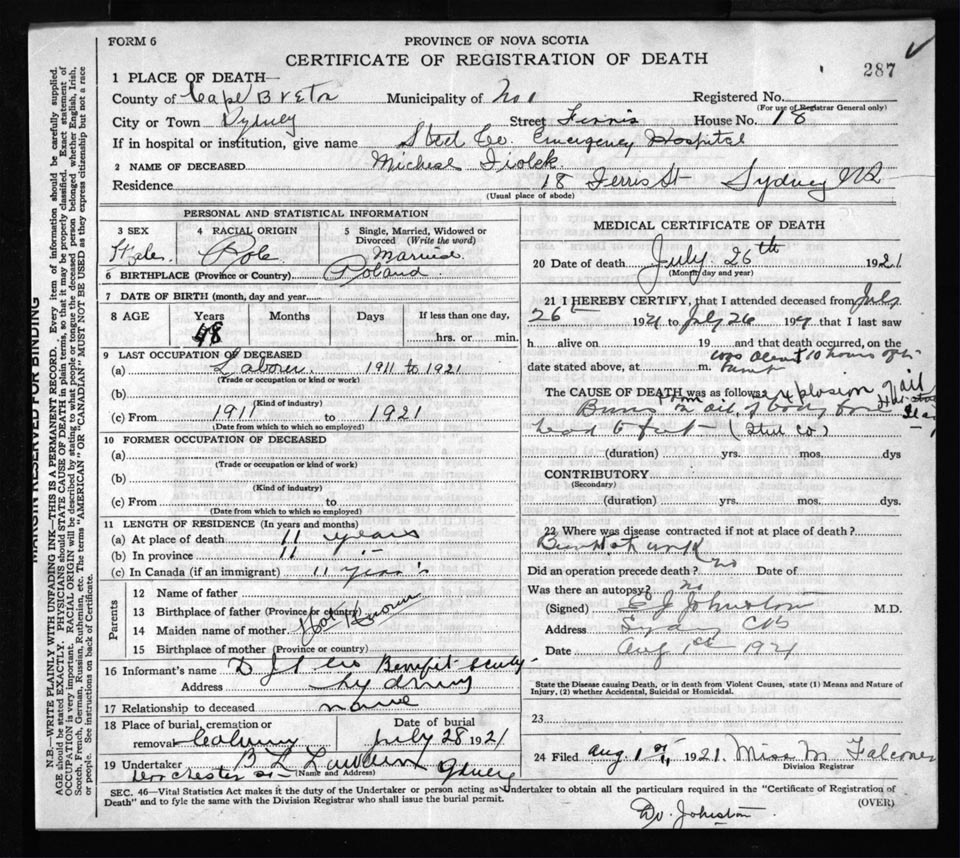 FORM 6
PROVINCE OF NOVA SCOTIA
CERTIFICATE OF REGISTRATION OF DEATH
287
1 PLACE OF DEATH—
County of Cape Breton Municipality of No 1 Registered No.
(For use of Registrar General only)
City or Town Sydney Street Ferris House No. 18
If in hospital or institution, give name Steel Co. Emergency Hospital
2 NAME OF DECEASED Micheal Fiolek
Residence 18 Ferris St Sydney NS
(Usual place of abode)
PERSONAL AND STATISTICAL INFORMATION
3 SEX
4 RACIAL ORIGIN Pole
5 Single, Married, Widowed or Divorced (Write the word) Married
6 BIRTHPLACE (Province or Country) Poland
7 DATE OF BIRTH (month, day and year)
8 AGE Years Months Days If less than one day,
48 hrs. or min.
9 LAST OCCUPATION OF DECEASED
(a) Laborer 1911 to 1921
(Trade or occupation or kind or work)
(b)
(Kind of industry)
(c) From 1911 to 1921
(Date from which to which so employed)
10 FORMER OCCUPATION OF DECEASED
(a)
(Trade or occupation or kind of work)
(b)
(Kind of industry)
(c) From to
(Date from which to which so employed)
11 LENGTH OF RESIDENCE (In years and months)
(a) At place of death 11 years
(b) In province 11 "
(c) In Canada (if an immigrant) 11 years
Parents
12 Name of father
13 Birthplace of father (Province or country)
Not Known
14 Maiden name of mother
15 Birthplace of mother (Province or country)
16 Informant's name D I S Co Benefit Society
Address Sydney
17 Relationship to deceased none
18 Place of burial, cremation or Date of burial
removal Calvary July 28 1921
19 Undertaker
(Name and Address)
Dorchester St Sydney
MEDICAL CERTIFICATE OF DEATH
20 Date of death July 26th 1921
(Month day and year)
21 I HEREBY CERTIFY, that I attended deceased from July
26th 1921 to July 26 1921 that I last saw
h alive on 19 and that death occurred, on the
date stated above, at m.
about 10 hours after burnt
The CAUSE OF DEATH was as follows: explosion
Burns on all of body from
head to feet — (Steel Co)
(duration) yrs. mos. dys
CONTRIBUTORY
(Secondary)
(duration) yrs. mos. dys.
22 Where was disease contracted if not at place of death?
Burnt at work
Did an operation precede death? no Date of
Was there an autopsy? no
(Signed) E J Johnston M.D.
Address Sydney CB
Date Aug 1st 1921
State the Disease causing Death, or in death from Violent Causes, state (1) Means and Nature of
Injury, (2) whether Accidental, Suicidal or Homicidal.
23
24 Filed Aug 1st 1921. Miss M Falconer
Division Registrar
SEC. 46—Vital Statistics Act makes it the duty of the Undertaker or person acting as Undertaker to obtain all the particulars required in the "Certificate of Registration of
Death" and to fyle the same with the Division Registrar who shall issue the burial permit.
(OVER)
Dr. Johnston
MARGIN RESERVED FOR BINDING
N.B.—WRITE PLAINLY WITH UNFADING INK—THIS IS A PERMANENT RECORD. Every item of information should be carefully supplied.
AGE should be stated EXACTLY. PHYSICIANS should STATE CAUSE OF DEATH in plain terms, so that it may be properly classified. Exact statement of
OCCUPATION is very important. RACIAL ORIGIN will be described by stating to what people or tongue the deceased person belonged whether English, Irish,
Scotch, French, German, Russian, Ruthenian, etc. The terms "AMERICAN" or "CANADIAN" MUST NOT BE USED as they express citizenship but not a race
or people. See instructions on back of Certificate.